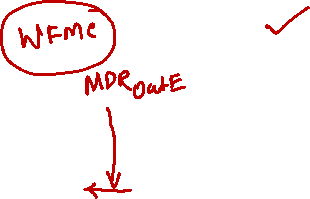 WFMC
MDROutE